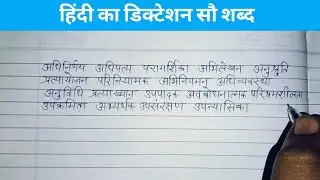 हिंदी का डिक्टेशन सौ शब्द
अधिनिर्णय अधिपत्य परामर्शिका अभिलेखन अनुश्रुति
प्रत्यायोजन परिनियामक अभिनियमन अधिव्यवस्था
अनुविधि प्रत्याख्यान उपपादक अवबोधनात्मक परिश्रमशीलता
उपक्रमिता अभ्यर्थक उपसंरक्षण उपन्यासिका